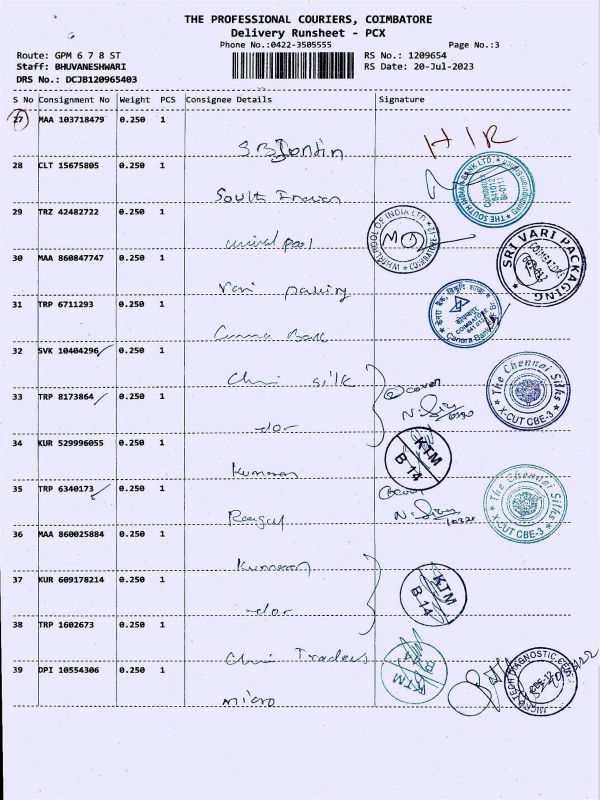 THE PROFESSIONAL COURIERS, COIMBATORE
Delivery Runsheet - PCX
Phone No.:0422-3505555
Page No.:3
Route: GPM 6 7 8 ST
RS No.: 1209654
Staff: BHUVANESHWARI
RS Date: 20-Jul-2023
DRS No.: DCJB120965403
S No Consignment No Weight PCS Consignee Details Signature
27 MAA 103718479 0.250 1
HIR
28 CLT 15675805 0.250 1
THE SOUTH INDIAN BANK LTD.
South Indian
29 TRZ 42482722 0.250 1
WHIRLPOOL OF INDIA LTD
COIMBATORE
SRI VARI PACKAGING
30 MAA 860847747 0.250 1
Vari packing
31 TRP 6711293 0.250 1
COIMBATORE
Canara Bank
Canara Bank
32 SVK 10404296 0.250 1
Chennai silk
The Chennai Silks
X-CUT CBE-3
33 TRP 8173864 0.250 1
cover
-do-
34 KUR 529996055 0.250 1
KTM
B 14
Kumaran
35 TRP 6340173 0.250 1
cover
The Chennai Silks
X-CUT CBE-3
36 MAA 860025884 0.250 1
Kumaran
37 KUR 609178214 0.250 1
KTM
B 14
-do-
38 TRP 1602673 0.250 1
Traders
KTM
39 DPI 10554306 0.250 1
MICRO TECH DIAGNOSTIC CEN
micro